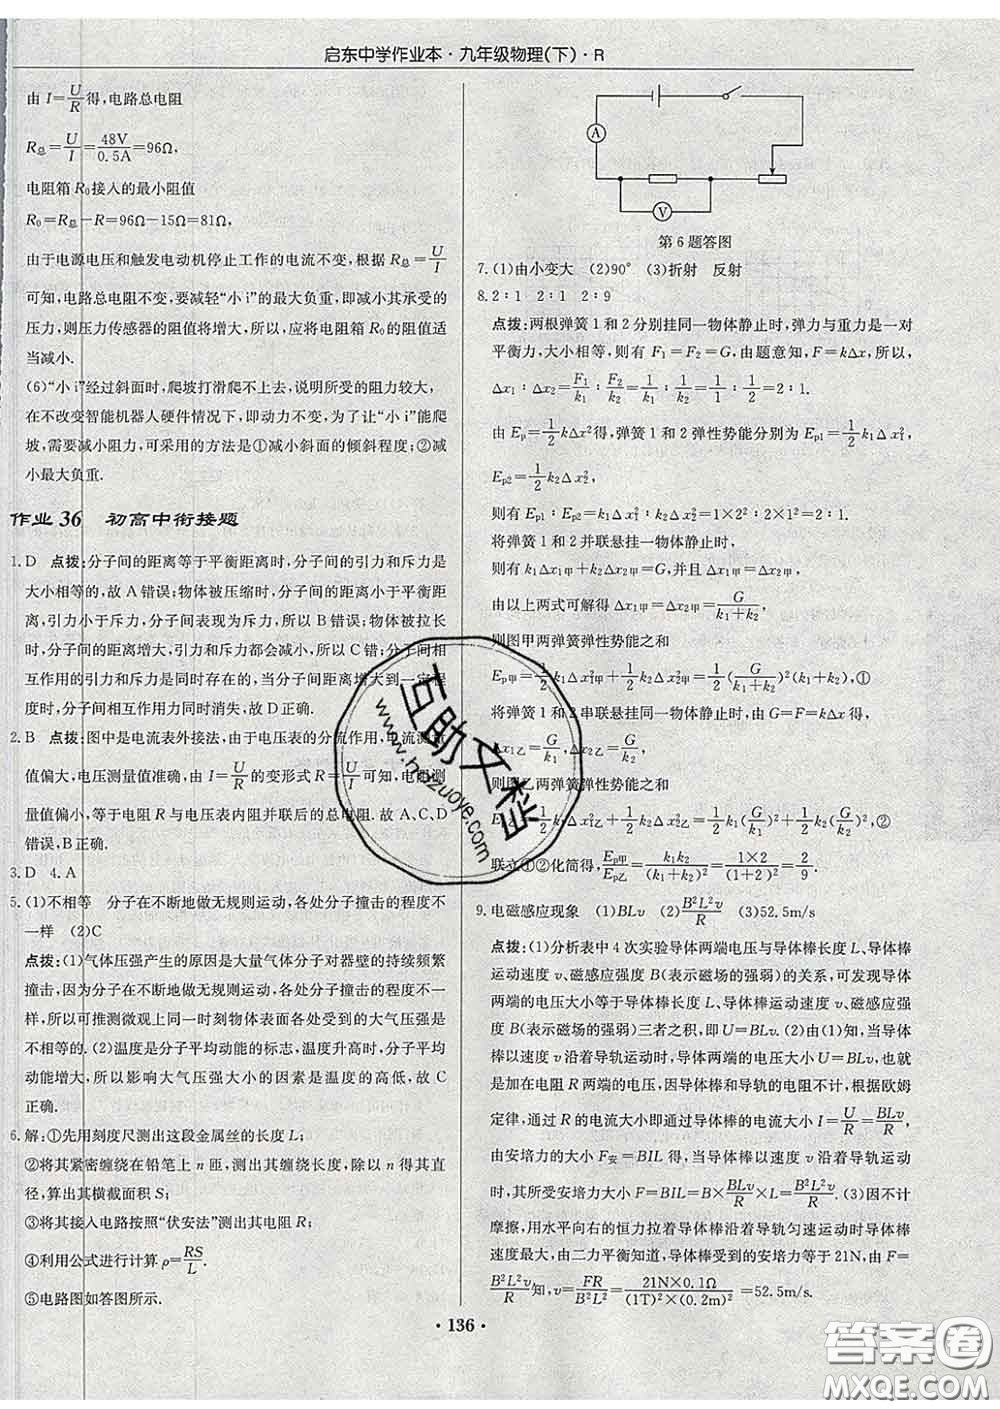 启东中学作业本·九年级物理(下)·R
由 I=U/R得,电路总电阻
R总=U/I=48V/0.5A=96Ω,
电阻箱 R0接入的最小阻值
R0=R总-R=96Ω-15Ω=81Ω,
由于电源电压和触发电动机停止工作的电流不变,根据 R总=U/I
可知,电路总电阻不变,要减轻“小 i”的最大负重,即减小其承受的
压力,则压力传感器的阻值将增大,所以,应将电阻箱 R0的阻值适
当减小.
(6)“小 i”经过斜面时,爬坡打滑爬不上去,说明所受的阻力较大,
在不改变智能机器人硬件情况下,即动力不变,为了让“小 i”能爬
坡,需要减小阻力,可采用的方法是①减小斜面的倾斜程度;②减
小最大负重.
作业 36 初高中衔接题
1.D 点拨:分子间的距离等于平衡距离时,分子间的引力和斥力是
大小相等的,故 A 错误;物体被压缩时,分子间的距离小于平衡距
离,引力小于斥力,分子间表现为斥力,所以 B 错误;物体被拉长
时,分子间的距离增大,引力和斥力都会减小,所以 C 错;分子间相
互作用的引力和斥力是同时存在的,当分子间距离增大到一定程
度时,分子间相互作用力同时消失,故 D 正确.
2.B 点拨:图中是电流表外接法,由于电压表的分流作用,电流测量
值偏大,电压测量值准确,由 I=U/R的变形式 R=U/I可知,电阻测
量值偏小,等于电阻 R 与电压表内阻并联后的总电阻.故 A、C、D
错误,B 正确.
3.D 4.A
5.(1)不相等 分子在不断地做无规则运动,各处分子撞击的程度不
一样 (2)C
点拨:(1)气体压强产生的原因是大量气体分子对器壁的持续频繁
撞击,因为分子在不断地做无规则运动,各处分子撞击的程度不一
样,所以可推测微观上同一时刻物体表面各处受到的大气压强是
不相等的.(2)温度是分子平均动能的标志,温度升高时,分子平均
动能增大,所以影响大气压强大小的因素是温度的高低,故 C
正确.
6.解:①先用刻度尺测出这段金属丝的长度 L;
②将其紧密缠绕在铅笔上 n 匝,测出其缠绕长度,除以 n 得其直
径,算出其横截面积 S;
③将其接入电路按照“伏安法”测出其电阻 R;
④利用公式进行计算 ρ=RS/L.
⑤电路图如答图所示.
A
V
第 6 题答图
7.(1)由小变大 (2)90° (3)折射 反射
8.2∶1 2∶1 2∶9
点拨:两根弹簧 1 和 2 分别挂同一物体静止时,弹力与重力是一对
平衡力,大小相等,则有 F1=F2=G,由题意知,F=kΔx,所以,
Δx1∶Δx2=F1/k1∶F2/k2=1/k1∶1/k2=1/1∶1/2=2∶1.
由 Ep=1/2kΔx²得,弹簧 1 和 2 弹性势能分别为 Ep1=1/2k1Δx1²,
Ep2=1/2k2Δx2²,
则有 Ep1∶Ep2=1/2k1Δx1²∶1/2k2Δx2²=1×2²∶2×1²=2∶1.
将弹簧 1 和 2 并联悬挂一物体静止时,
则有 k1Δx1甲+k2Δx2甲=G,并且 Δx1甲=Δx2甲,
由以上两式可解得 Δx1甲=Δx2甲=G/(k1+k2),
则图甲两弹簧弹性势能之和
Ep甲=1/2k1Δx1甲²+1/2k2Δx2甲²=1/2(G/(k1+k2))²(k1+k2),①
将弹簧 1 和 2 串联悬挂同一物体静止时,由 G=F=kΔx得,
Δx1乙=G/k1,Δx2乙=G/k2,
则图乙两弹簧弹性势能之和
Ep乙=1/2k1Δx1乙²+1/2k2Δx2乙²=1/2k1(G/k1)²+1/2k2(G/k2)²,②
联立①②化简得,Ep甲/Ep乙=k1k2/(k1+k2)²=1×2/(1+2)²=2/9.
9.电磁感应现象 (1)BLv (2)B²L²v/R (3)52.5m/s
点拨:(1)分析表中 4 次实验导体两端电压与导体棒长度 L、导体棒
运动速度 v、磁感应强度 B(表示磁场的强弱)的关系,可发现导体
两端的电压大小等于导体棒长度 L、导体棒运动速度 v、磁感应强
度 B(表示磁场的强弱)三者之积,即 U=BLv.(2)由(1)知,当导体
棒以速度 v 沿着导轨运动时,导体两端的电压大小 U=BLv,也就
是加在电阻 R 两端的电压,因导体棒和导轨的电阻不计,根据欧姆
定律,通过 R 的电流大小即通过导体棒的电流大小 I=U/R=BLv/R,
由安培力的大小 F安=BIL 得,当导体棒以速度 v 沿着导轨运动
时,其所受安培力大小 F=BIL=B×BLv/R×L=B²L²v/R.(3)因不计
摩擦,用水平向右的恒力拉着导体棒沿着导轨匀速运动时导体棒
速度最大,由二力平衡知道,导体棒受到的安培力等于 21N,由 F=
B²L²v/R知,v=FR/B²L²=21N×0.1Ω/(1T)²×(0.2m)²=52.5m/s
·136·
互助文档
www.hdzuoye.com
答案圈
MXQE.COM